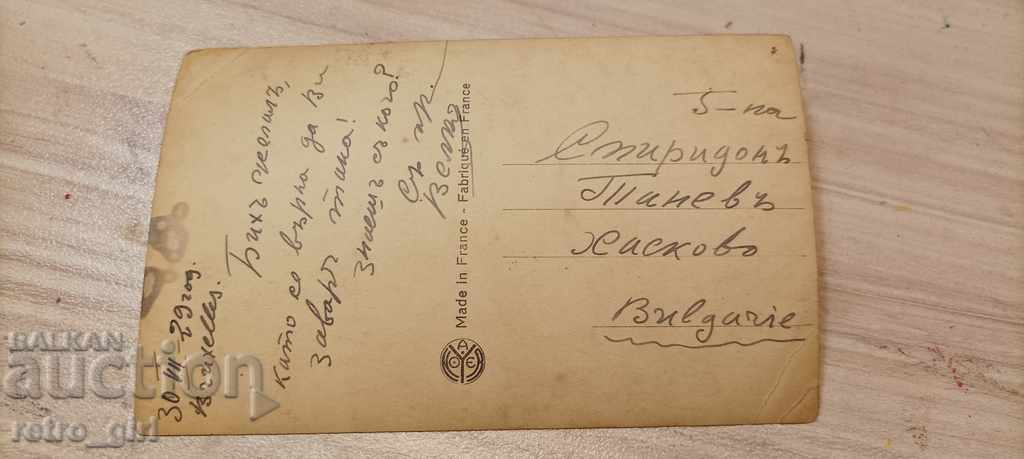 30-III-29 год.
Bruxelles.
Бихъ желалъ,
като се върна да Ви
заваря така!
Знаешъ съ кого?
Съ пр.
Made in France - Fabriqué en France
Г-на
Спиридонъ
Таневъ
Хасково
Bulgarie
BALKAN
auction
retro_girl